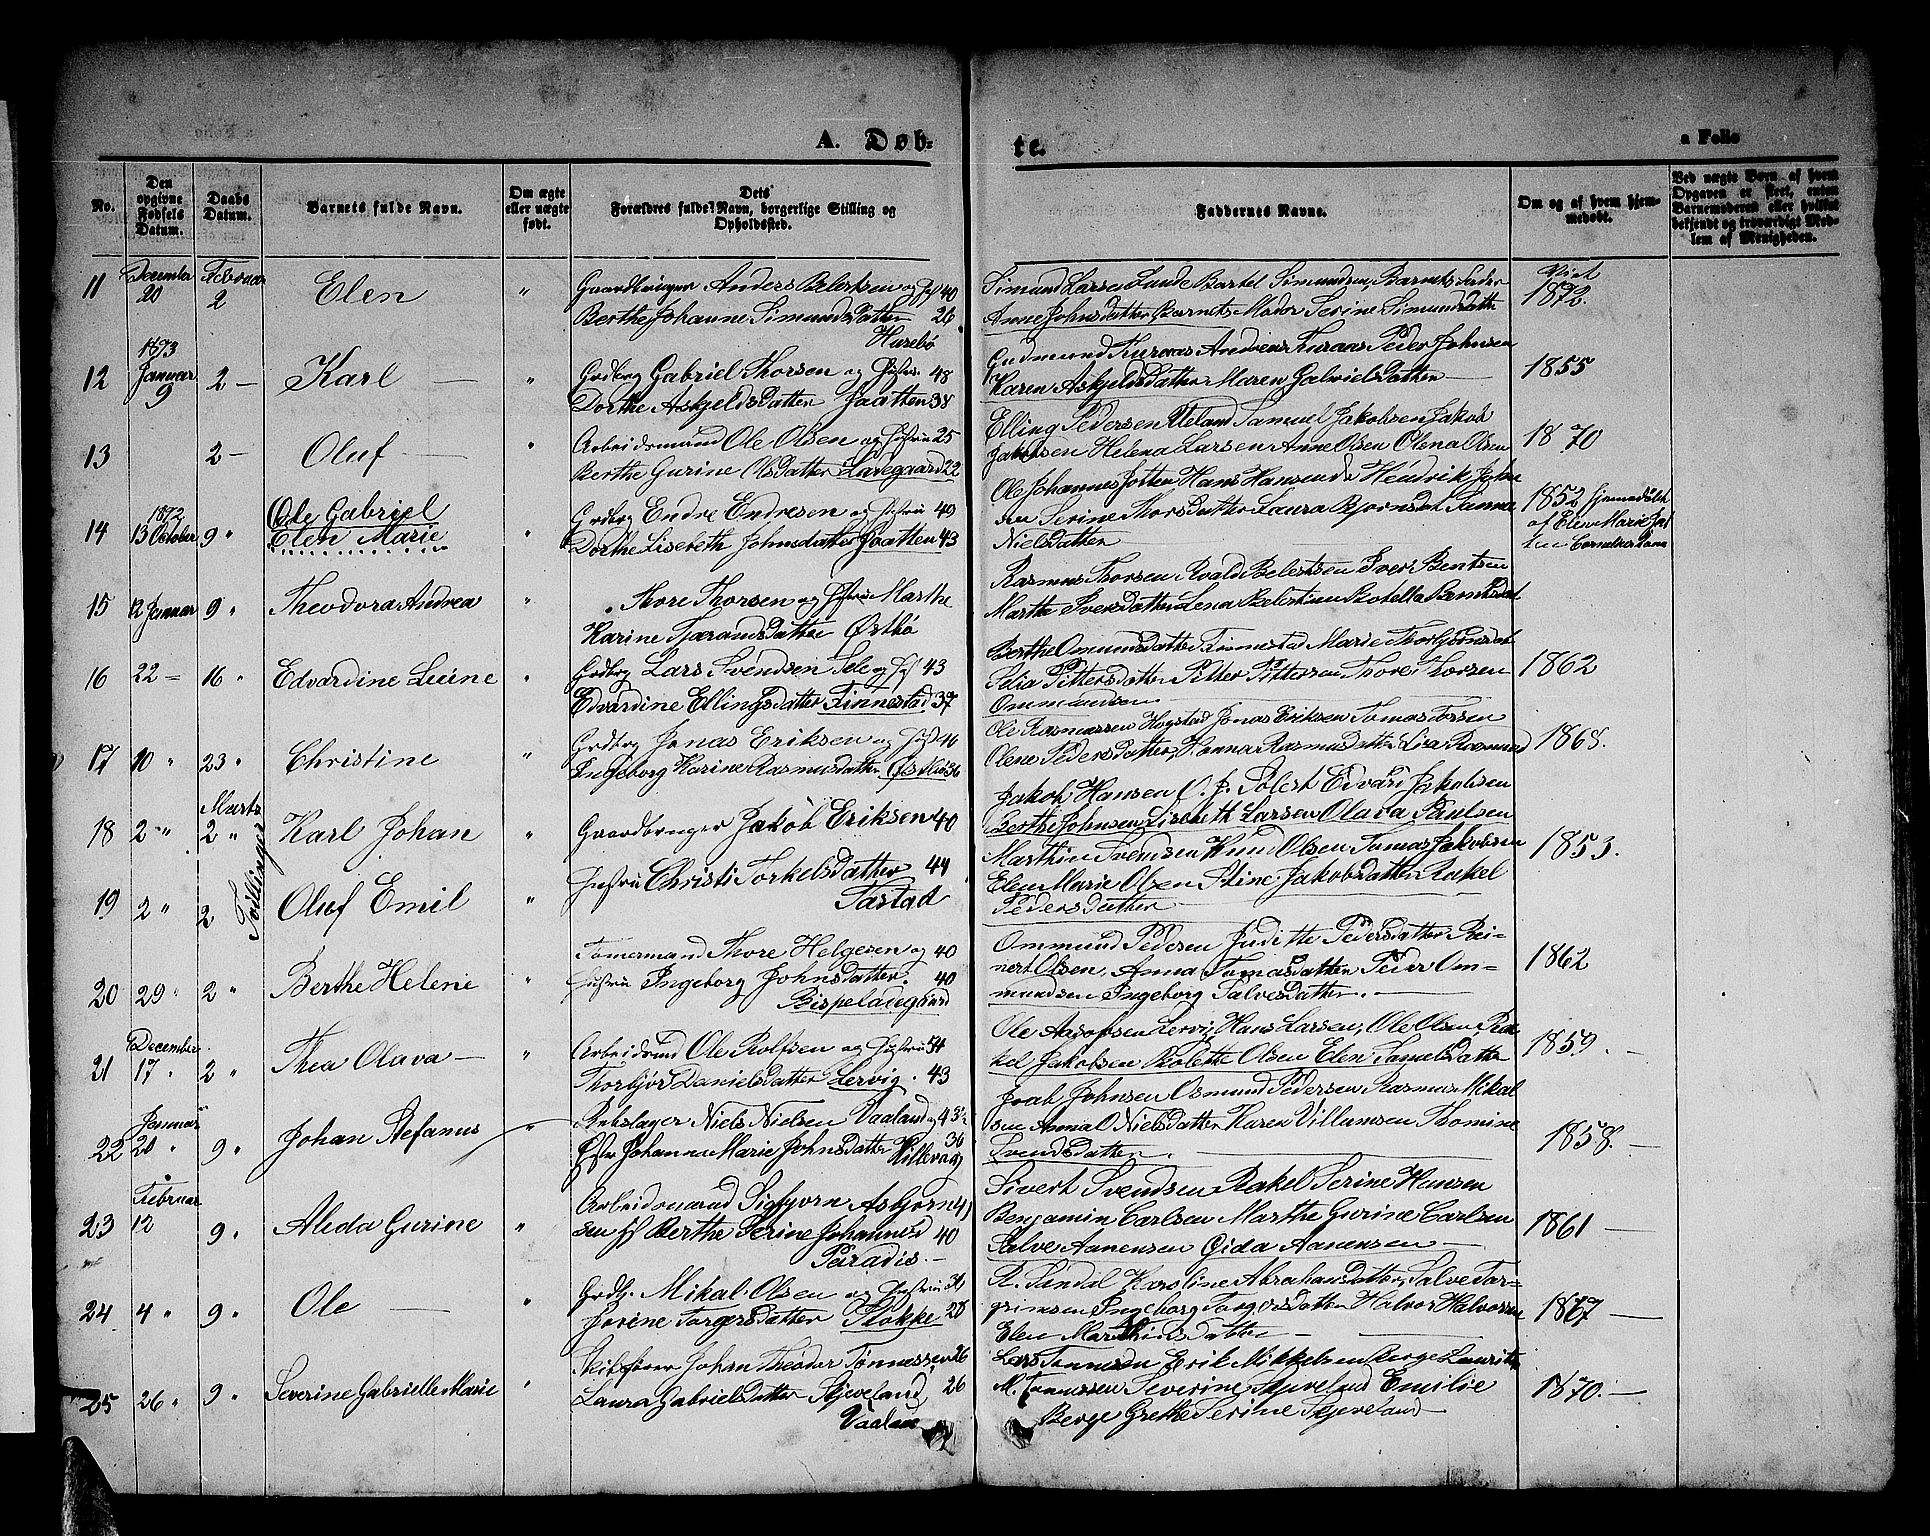 A. Døb-
te.
a Folio
No.
Den opgivne Fødsels Datum.
Daabs Datum.
Barnets fulde Navn.
Om ægte eller uægte født.
Dets Forældres fulde Navn, borgerlige Stilling og Opholdssted.
Faddernes Navne.
Om og af hvem hjemmedøbt.
Ved uægte Børn af hvem Opgaven er skeet, enten Barnemoderen eller hvilket bekjendt og troværdigt Medlem af Menigheden.
11 December 20 Februar 2 Elen " Gaardbruger Anders Belestsen og Hst 40
Berthe Johanne Simunds Datter 26
Simund Larsen Sande Bartel Simundsen, Barnets Fader
Anne Johnsdatter Barnets Moder Serine Simundsdatter
1872.
12 1873 Januar 9 2 — Karl — " Grdbrg Gabriel Thorsen og Hustru 48
Dorthe AskjeldsDatter Jaatten 38
Gudmund Andreas Peder Johnsen
Karen AskjeldsDatter Maren GabrielsDatter —
1855
13 2 — Oluf — " Arbeidsmand Ole Olsen og Hustru 25
Berthe Gurine OlsDatter Ladegaard 22
Elling Pedersen Samuel Jakobsen Jakob
Jakobsen Helena Larsen Anne Olsen Olena Olsen
1870
14 1872 13 October 9 " Ole Gabriel
Elen Marie
" Grdbrg Endre Endresen og Hustru 49
Dorthe Lisebeth Johnsdatter Jaatten 43
Ole Johannes Jotten Hans Hansen Hendrik
Serine ThorsDatter Laura Sanna
NielsDatter
1852 hjemmedøbt
af Elen Marie
15 12 Januar 9 " Theodora Andrea " Thore Thorsen og Hustru Marthe
Karine TjerandsDatter Østbø
Rasmus Thorsen Roald Belestsen Iver Bentsen
Marthe IversDatter Lena Belestsen
16 22 = 16 " Edvardine Lisine " Grdbrg Lars Svendsen Sele og Hst 43
Edvardine EllingsDatter Finnestad 37
Berthe OmmundsDatter Finnestad Marie
PittersDatter Pitter Pittersen Thore Thorsen
Ommundsen
1862
17 10 " 23 " Christine " Grdbrg Jonas Eriksen og Hst 46
Ingeborg Karine Rasmusdatter 36
Ole Rasmussen Hogstad Jonas Eriksen Tomas Torsen
Olene PedersDatter, Hanna RasmusDatter Lisa
1868.
18 2 " Marts 2 " Karl Johan " Gaardbruger Jakob Eriksen 40
Jakob Hansen Edvard Jakobsen
Berthe Johnsen, Lisbeth Larsen Olava Paulsen
Tvillinger
Hustru Christi TorkelsDatter 44
Tastad
1853.
19 2 " 2 Oluf Emil "
Marthin Svendsen Knud Olsen Tomas Jakobsen
Elen Marie Olsen Stine JakobsDatter Rakel
PedersDatter —
20 29 " 2 " Berthe Helene " Tømermand Thore Helgesen og 40
Hustru Ingeborg JohnsDatter 40
Bispeladegaard
Ommund Pedersen Juditte PedersDatter Rei-
nert Olsen, Anna TomasDatter Peder Om-
mundsen Ingeborg SalvesDatter. —
1862
21 December 17 " 2 " Thea Olava — " Arbeidsmd Ole Rolfsen og Hustru 54
Thorbjør DanielsDatter Lervig. 43
Ole Lervig Hans Larsen, Ole Olsen Ra-
kel Jakobsen Bolette Olsen Elen SamuelsDatter
1859 . —
22 Januar 20 " 9 " Johan Stefanus " Niels Nielsen Vaaland og 43
Johanna Marie JohnsDatter Hillevaag 36
Joab Johnsen Osmund Pedersen Rasmus Mikal
sen Anna O NielsDatter Karen Villumsen Thomine
SvendsDatter.
1858. —
23 Februar 12 9 " Aleda Gurine " Arbeidsmand Sigbjørn Asbjørn 41
sen Hst Berthe Serine 40
Paradis. —
Sivert Svendsen Rakel Serine Hansen
Benjamin Carlsen Marthe Gurine Carlsen
Salve Aanensen Gida Aanensen —
1861 —
24. 4 " 9 " Ole — " Grdb. Mikal Olsen og Hustru
Jorine TorgersDatter Stokke 28
Karoline AbrahamsDatter, Salve Tor-
grimsen Ingeborg TorgersDatter Halvor Halvorsen
Elen MarthinsDatter —
1867 —
25 26 " 9 " Severine Gabrielle Marie " Skibsfører Johan Theodor Tønnessen 26
Laura GabrielsDatter Skjeveland, 26
Vaaland
Lars Tønnesen Erik Mikkelsen Berge Laurits
M. Tønnessen Severine Skjeveland Emilie
Berge Grethe Serine Skjeveland —
1870. —